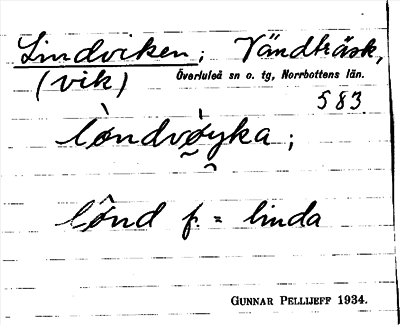 Lindviken; Vändträsk,
(vik) Överluleå sn o. tg, Norrbottens län.
583
lòndvøyka;
lônd f. = linda
GUNNAR PELLIJEFF 1934.